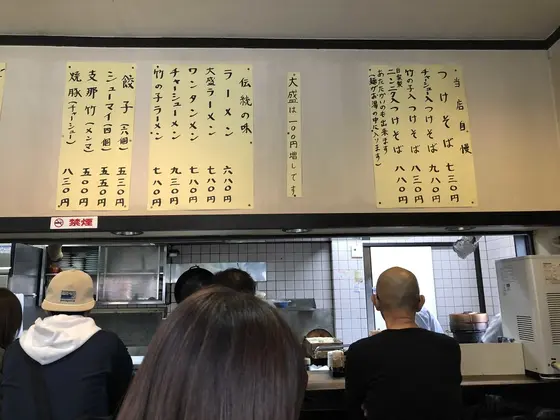 当店自慢
つけそば 七三〇円
チャーシュー入つけそば 九八〇円
竹の子入つけそば 八八〇円
自家製ニンニク入つけそば 八八〇円
あたたかいのも出来ます
(麺がお湯の中に入ります)
大盛は一〇〇円増しです。
伝統の味
ラーメン 六八〇円
大盛ラーメン 七八〇円
ワンタンメン 七八〇円
チャーシューメン 九三〇円
竹の子ラーメン 七八〇円
餃子(六個) 五三〇円
シューマイ(四個) 五五〇円
支那竹(メンマ) 五五〇円
焼豚(チャーシュー) 八三〇円
禁煙